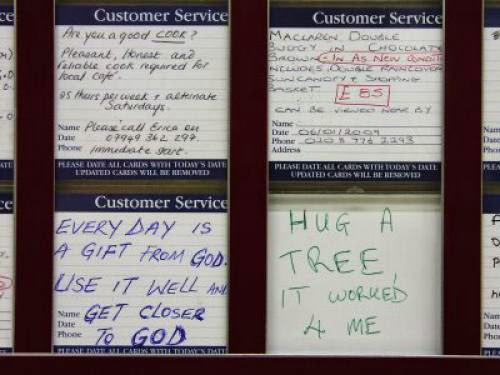 Customer Service
Are you a good COOK?
Pleasant, Honest and
reliable cook required for
local cafe.
25 Hours per week + alternate
Saturdays.
Name Please call Erica on
Date 07949 362 297
Phone Immediate start.
PLEASE DATE ALL CARDS WITH TODAY'S DATE
UPDATED CARDS WILL BE REMOVED
Customer Service
MACLAREN DOUBLE
BUGGY IN CHOCOLATE
BROWN - IN AS NEW CONDITION
INCLUDES DOUBLE RAINCOVER
SUNCANOPY & SHOPPING
BASKET £85
CAN BE VIEWED NEAR BY
Name
Date 06/01/2009
Phone 0208 776 2293
Address
PLEASE DATE ALL CARDS WITH TODAY'S DATE
UPDATED CARDS WILL BE REMOVED
Customer Service
EVERY DAY IS
A GIFT FROM GOD.
USE IT WELL AND
Name GET CLOSER
Date
Phone TO GOD
PLEASE DATE ALL CARDS WITH TODAY'S DATE
HUG A
TREE,
IT WORKED
4 ME